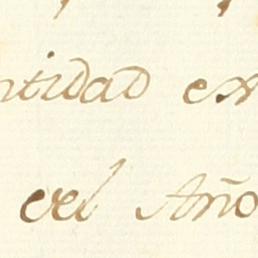 ntidad ex
del Año